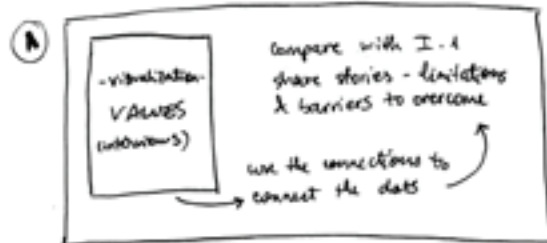 A
-visualization-
VALUES
(interviews)
compare with I-1
share stories - limitations
& barriers to overcome
use the connections to
connect the dots